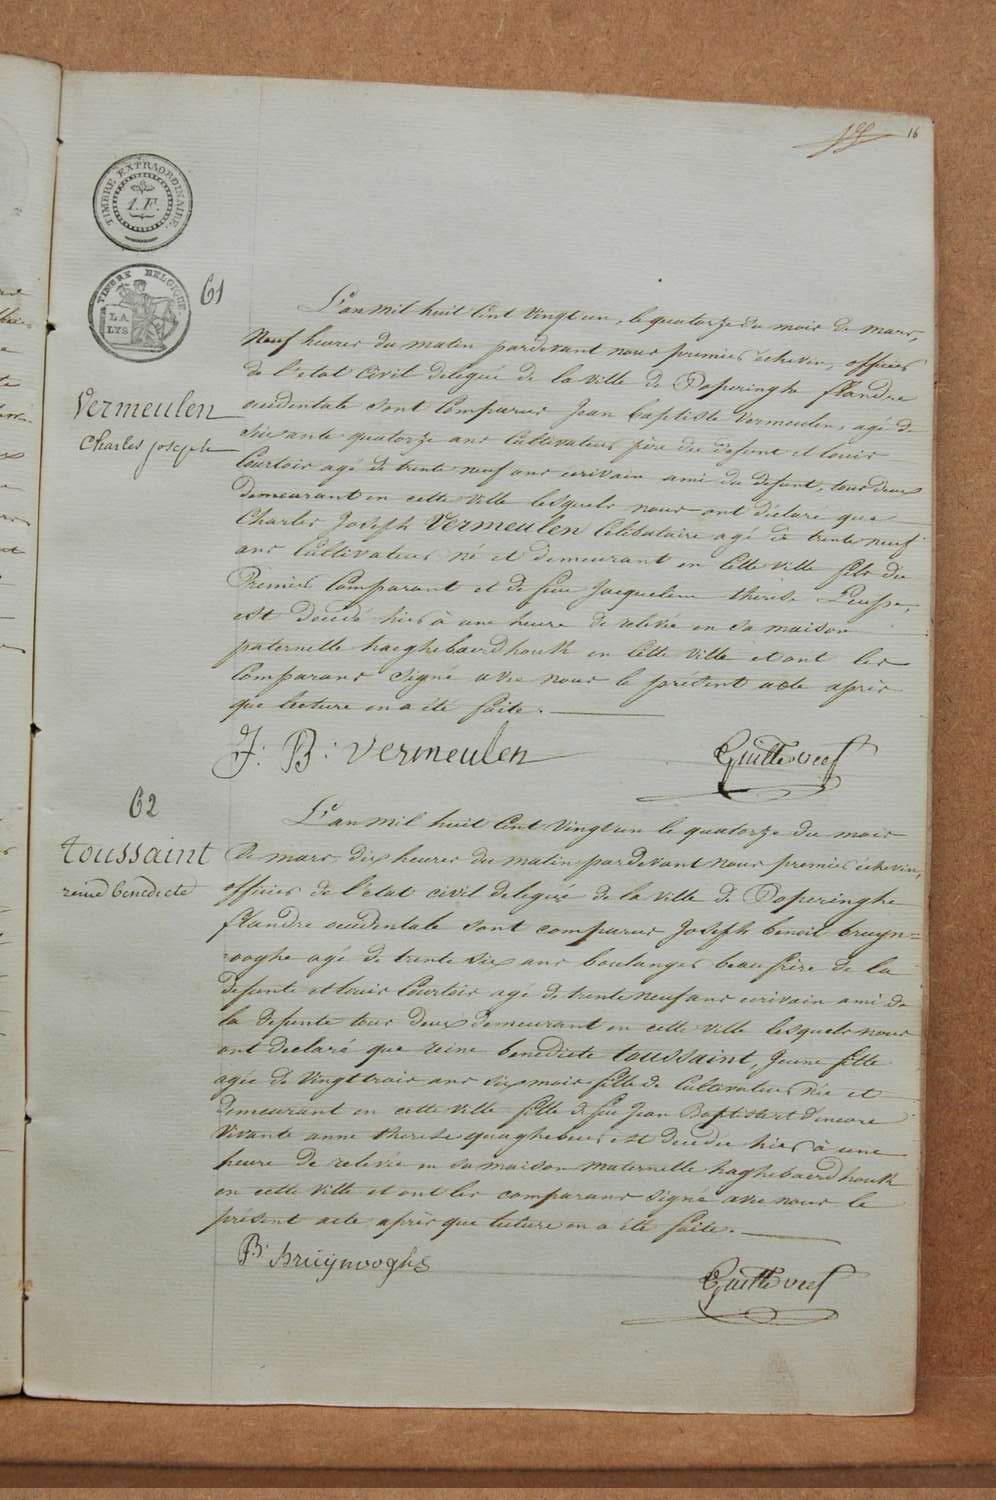 16
TIMBRE EXTRAORDINAIRE
1.F.
TIMBRE BELGIQUE
LA
LYS
61
Vermeulen
Charles Joseph
L'an mil huit cent vingt un, le quatorze du mois de mars,
Neuf heures du matin pardevant nous premier échevin, officier
de l'etat civil delegué de la ville de Poperinghe flandre
occidentale sont comparus Jean baptiste Vermeulen, agé de
soixante quatorze ans cultivateur père du defunt et louis
Courtois agé de trente neuf ans ecrivain ami du defunt, tous deux
demeurant en cette ville lesquels nous ont déclaré que
Charles Joseph Vermeulen Celibataire agé de trente neuf
ans cultivateur né et demeurant en cette ville fils du
Premier Comparant et de feue Jacqueline therese
est decedé hier à une heure de relevée en sa maison
paternelle haeghebaerdhouk en cette ville et ont les
Comparans signé avec nous le présent acte après
que lecture en a été faite.
J: B: Vermeulen
62
toussaint
reine benedicte
L'an mil huit cent vingt un le quatorze du mois
de mars, dix heures du matin pardevant nous premier échevin,
officier de l'etat civil delegué de la ville de Poperinghe
flandre occidentale sont comparus Joseph benoit bruyn=
ooghe agé de trente six ans boulanger beau frère de la
defunte et louis Courtois agé de trente neuf ans ecrivain ami de
la defunte tous deux demeurant en cette ville lesquels nous
ont declaré que reine benedicte toussaint, jeune fille
agée de vingt trois ans six mois fille de cultivateur née et
demeurant en cette ville fille de feu Jean Baptiste et d'encore
vivante anne therese quaghebeur est decedée hier à une
heure de relevée en sa maison maternelle haghebaerdhouk
en cette ville et ont les comparans signé avec nous le
présent acte, après que lecture en a été faite.
B: bruÿnooghe